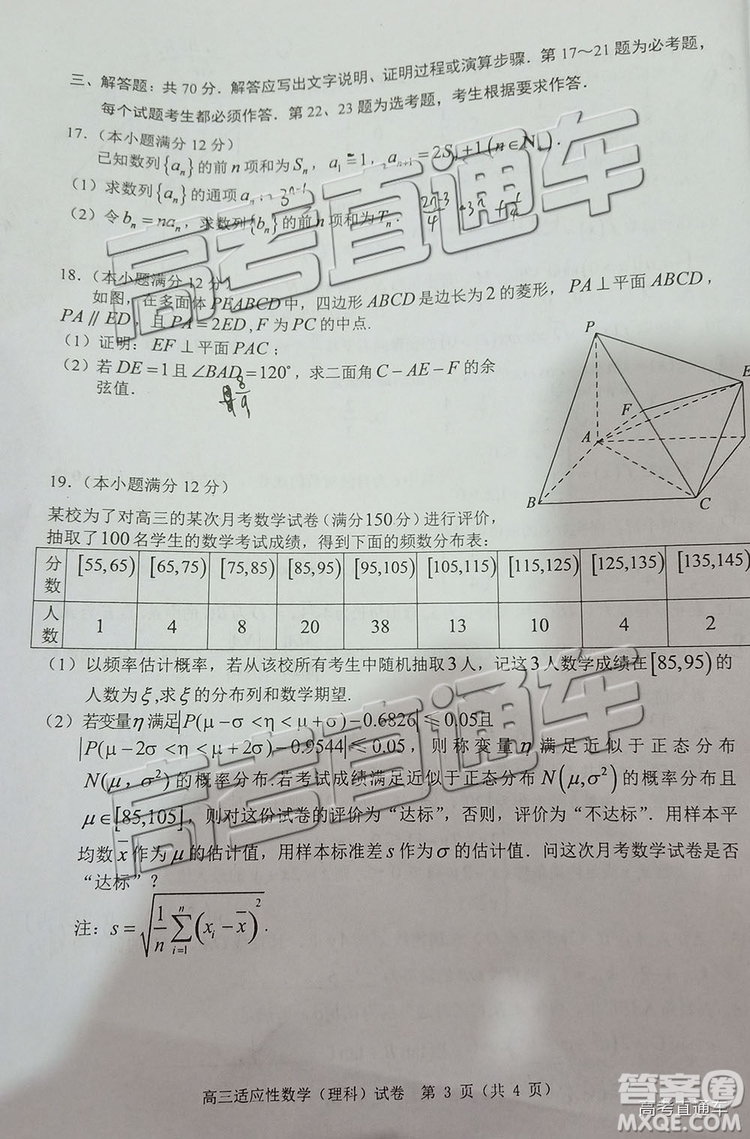 三、解答题：共 70 分．解答应写出文字说明、证明过程或演算步骤．第 17～21 题为必考题，
每个试题考生都必须作答．第 22、23 题为选考题，考生根据要求作答．
17．（本小题满分 12 分）
已知数列{aₙ}的前 n 项和为 Sₙ，a₁=1，aₙ₊₁=2Sₙ+1(n∈N₊)．
（1）求数列{aₙ}的通项 aₙ； 3ⁿ⁻¹
（2）令 bₙ=naₙ，求数列{bₙ}的前 n 项和为 Tₙ．
18．（本小题满分 12 分）
如图，在多面体 PEABCD 中，四边形 ABCD 是边长为 2 的菱形，PA⊥平面 ABCD，
PA∥ED，且 PA=2ED，F 为 PC 的中点．
（1）证明：EF⊥平面 PAC；
（2）若 DE=1 且∠BAD=120°，求二面角 C－AE－F 的余
弦值． 8/9
P
E
F
A
B
C
19．（本小题满分 12 分）
某校为了对高三的某次月考数学试卷（满分150分）进行评价，
抽取了100名学生的数学考试成绩，得到下面的频数分布表：
分数 [55,65) [65,75) [75,85) [85,95) [95,105) [105,115) [115,125) [125,135) [135,145)
人数 1 4 8 20 38 13 10 4 2
（1）以频率估计概率，若从该校所有考生中随机抽取3人，记这3人数学成绩在[85,95)的
人数为ξ,求ξ的分布列和数学期望．
（2）若变量η满足|P(μ－σ<η<μ+σ)－0.6826|≤0.05且
|P(μ－2σ<η<μ+2σ)－0.9544|≤0.05，则称变量η满足近似于正态分布
N(μ，σ²)的概率分布.若考试成绩满足近似于正态分布N(μ,σ²)的概率分布且
μ∈[85,105]，则对这份试卷的评价为“达标”，否则，评价为“不达标”．用样本平
均数x̄作为μ的估计值，用样本标准差s作为σ的估计值．问这次月考数学试卷是否
“达标”？
注：s=√(1/n ∑ᵢ₌₁ⁿ(xᵢ－x̄)²)．
高三适应性数学（理科）试卷 第 3 页（共 4 页）
高考直通车
高考直通车
高考直通车
答案圈
高考直通车
MXQE.COM